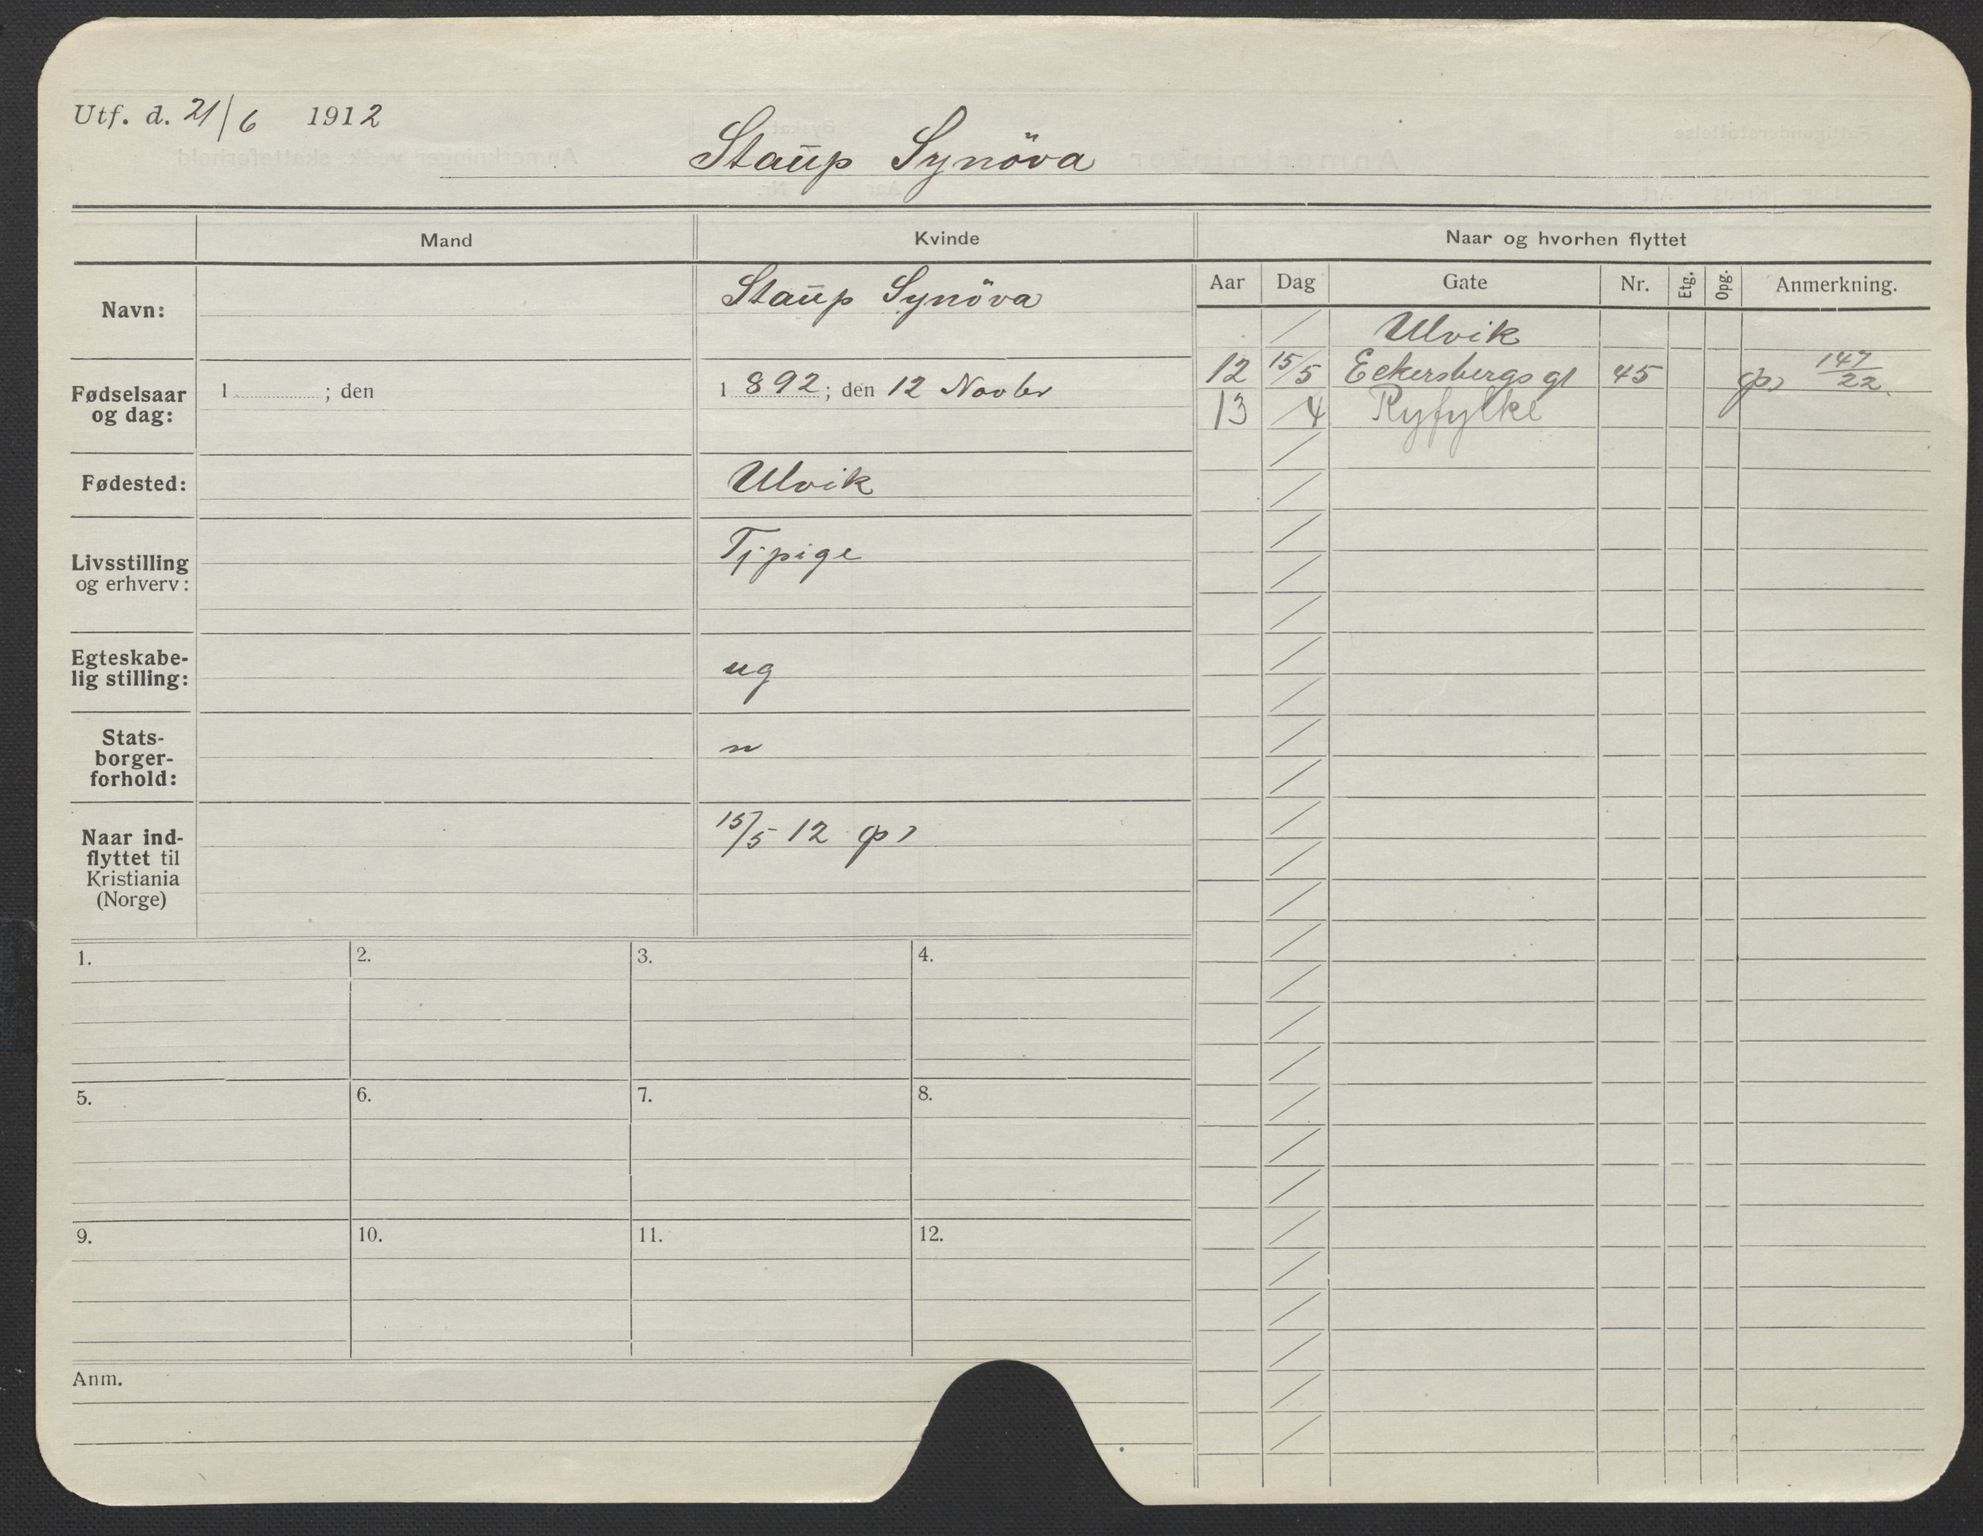 Utf. d. 21/6 1912
Staup Synöva
Mand
Kvinde
Naar og hvorhen flyttet
Navn:
Staup Synöva
Fødselsaar og dag:
1 ; den
1892; den 12 Novbr
Fødested:
Ulvik
Livsstilling og erhverv:
Tj.pige
Egteskabe-
lig stilling:
ug
Stats-
borger-
forhold:
n
Naar ind-
flyttet til
Kristiania
(Norge)
15/5 12
Aar Dag Gate Nr. Etg. Opg. Anmerkning.
Ulvik
12 15/5 Eckersbergs gt 45 147/22
13 /4 Ryfylke
1. 2. 3. 4.
5. 6. 7. 8.
9. 10. 11. 12.
Anm.